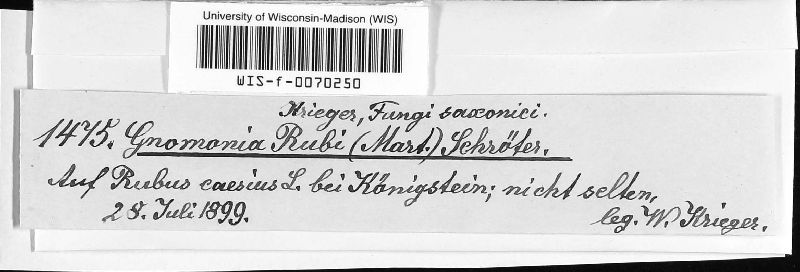 University of Wisconsin-Madison (WIS)
WIS-f-0070250
Krieger, Fungi saxonici.
1475. Gnomonia Rubi (Mart.) Schröter.
Auf Rubus caesius L. bei Königstein; nicht selten,
28. Juli 1899.
leg. W. Krieger.